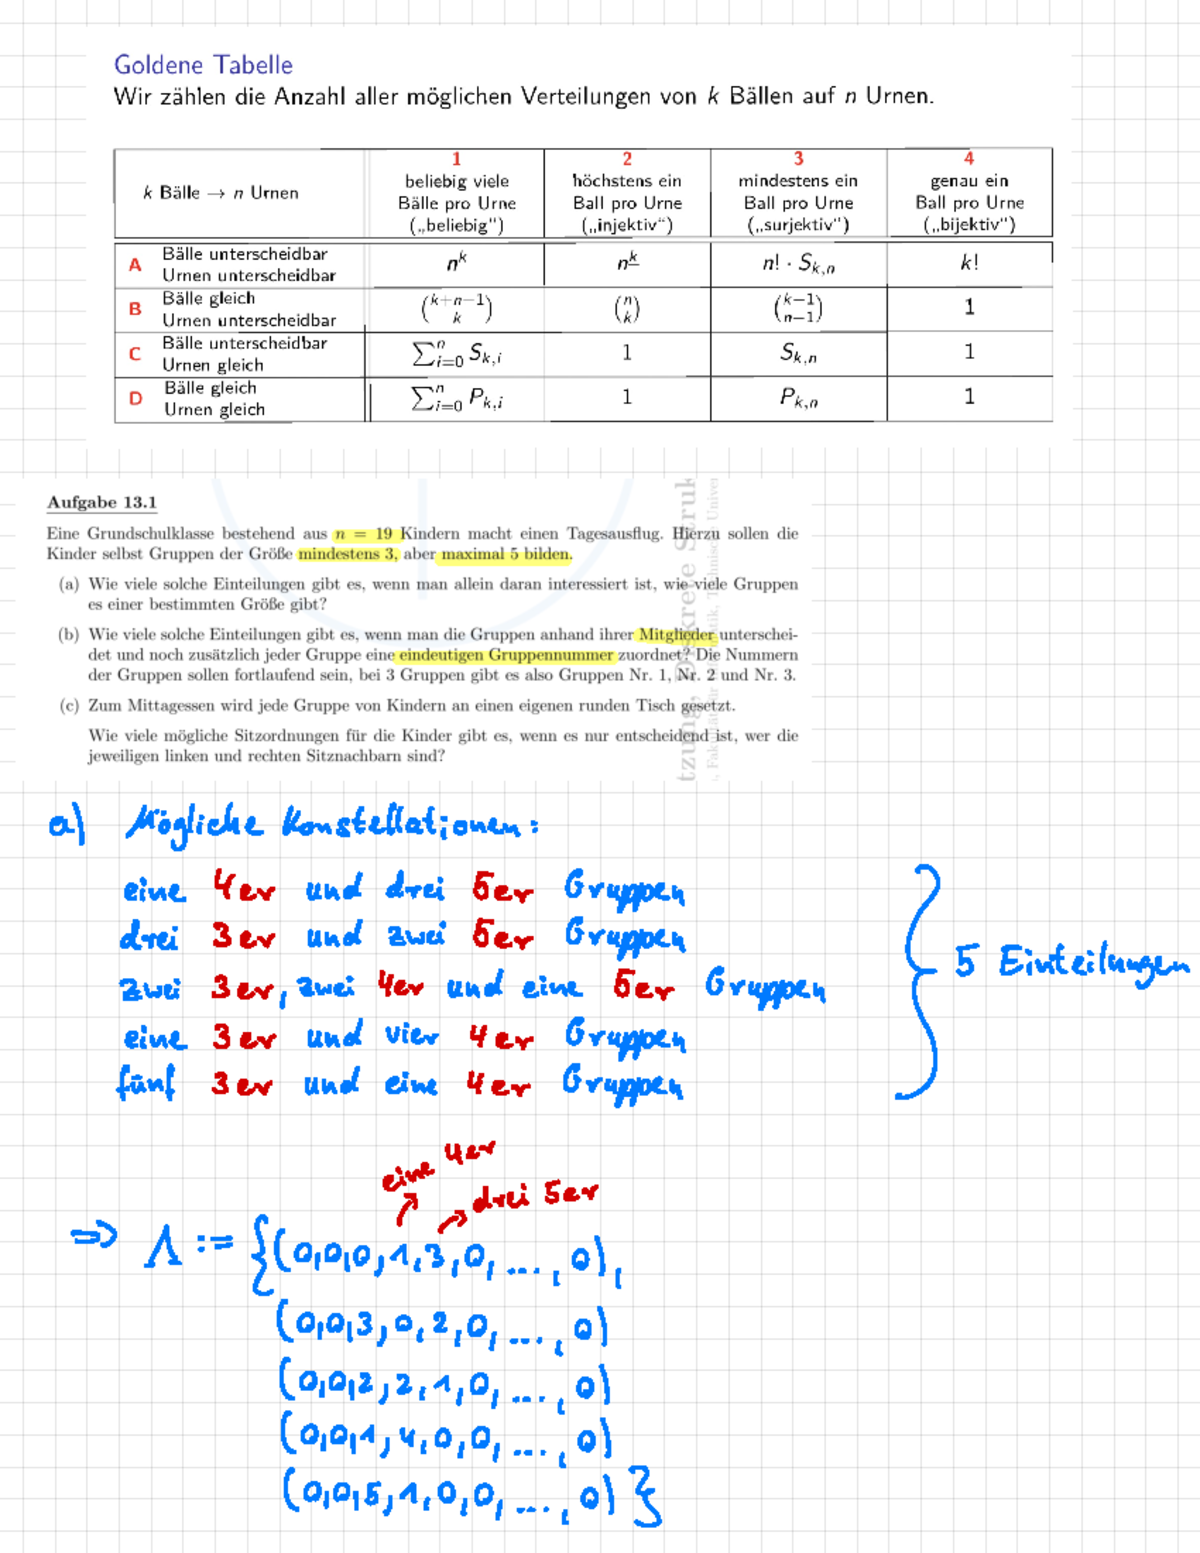 Goldene Tabelle
Wir zählen die Anzahl aller möglichen Verteilungen von k Bällen auf n Urnen.
k Bälle → n Urnen
1
beliebig viele
Bälle pro Urne
(„beliebig“)
2
höchstens ein
Ball pro Urne
(„injektiv“)
3
mindestens ein
Ball pro Urne
(„surjektiv“)
4
genau ein
Ball pro Urne
(„bijektiv“)
A Bälle unterscheidbar
Urnen unterscheidbar
n^k
n^{\underline{k}}
n! · S_{k,n}
k!
B Bälle gleich
Urnen unterscheidbar
\binom{k+n−1}{k}
\binom{n}{k}
\binom{k−1}{n−1}
1
C Bälle unterscheidbar
Urnen gleich
∑_{i=0}^{n} S_{k,i}
1
S_{k,n}
1
D Bälle gleich
Urnen gleich
∑_{i=0}^{n} P_{k,i}
1
P_{k,n}
1
Aufgabe 13.1
Eine Grundschulklasse bestehend aus n = 19 Kindern macht einen Tagesausflug. Hierzu sollen die
Kinder selbst Gruppen der Größe mindestens 3, aber maximal 5 bilden.
(a) Wie viele solche Einteilungen gibt es, wenn man allein daran interessiert ist, wie viele Gruppen
es einer bestimmten Größe gibt?
(b) Wie viele solche Einteilungen gibt es, wenn man die Gruppen anhand ihrer Mitglieder unterschei-
det und noch zusätzlich jeder Gruppe eine eindeutigen Gruppennummer zuordnet? Die Nummern
der Gruppen sollen fortlaufend sein, bei 3 Gruppen gibt es also Gruppen Nr. 1, Nr. 2 und Nr. 3.
(c) Zum Mittagessen wird jede Gruppe von Kindern an einen eigenen runden Tisch gesetzt.
Wie viele mögliche Sitzordnungen für die Kinder gibt es, wenn es nur entscheidend ist, wer die
jeweiligen linken und rechten Sitznachbarn sind?
a) Mögliche Konstellationen:
eine 4er und drei 5er Gruppen
drei 3er und zwei 5er Gruppen
zwei 3er, zwei 4er und eine 5er Gruppen
eine 3er und vier 4er Gruppen
fünf 3er und eine 4er Gruppen
5 Einteilungen
eine 4er
drei 5er
⇒ Λ := {(0,0,0,1,3,0,...,0),
(0,0,3,0,2,0,...,0)
(0,0,2,2,1,0,...,0)
(0,0,1,4,0,0,...,0)
(0,0,5,1,0,0,...,0)}